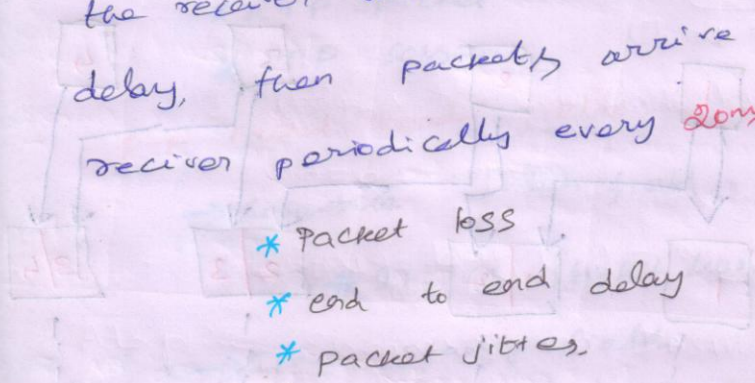 the receiver
delay, then packets arrive
reciver periodically every 20ms
* Packet loss
* end to end delay
* packet jitter.